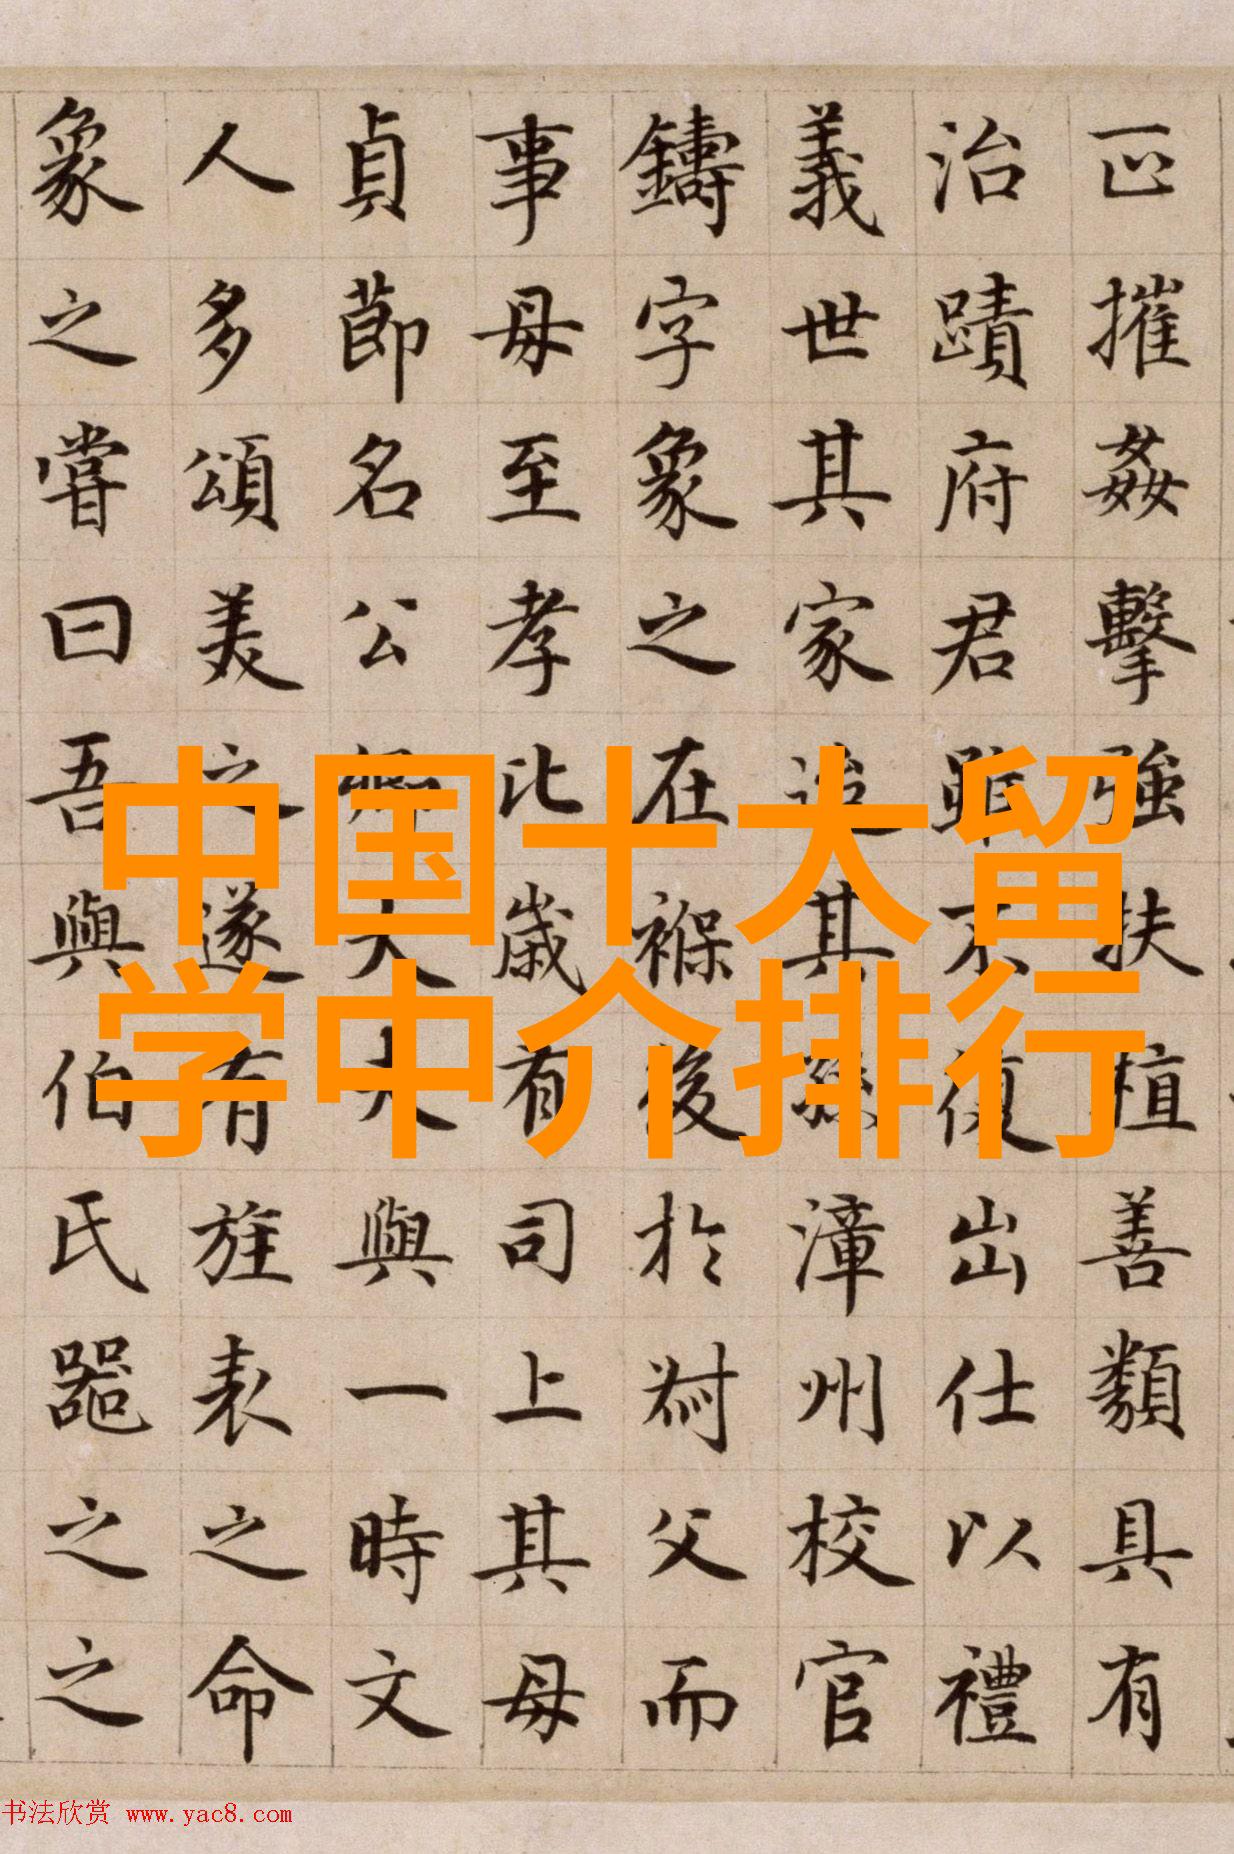 中国十大留
学中介排行
正摧姦擊強扶植善類具有
治蹟府君雖不復出仕以禮
義世其家追其孫漳州校官
鑄字象之在褓後於父而
事母至孝比歲有司上其母
貞節名公卿大夫與一時文
人多頌美之遂有旌表之命
象之嘗曰吾與伯氏噐之之
书法欣赏 www.yac8.com